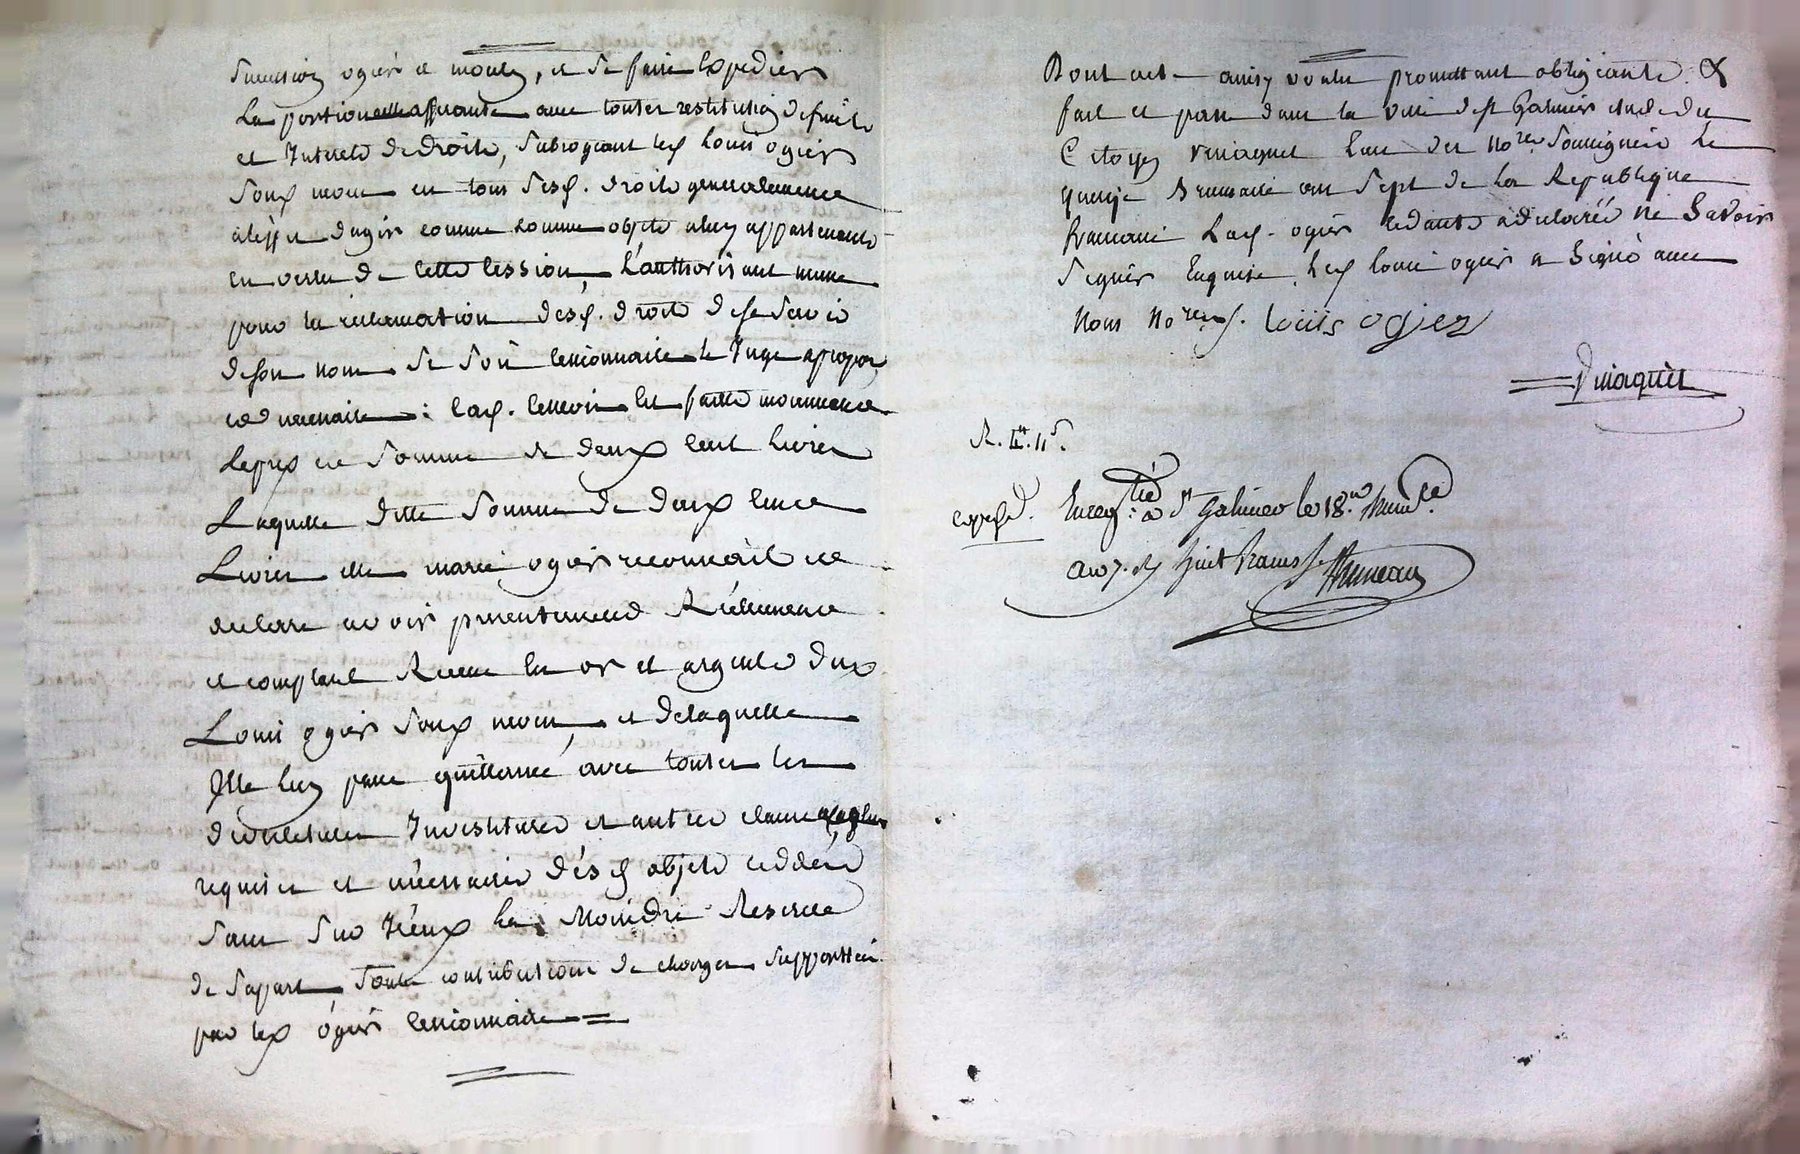 succession ogier et moulin, et se faire expedier
La portion afferante avec toutes restitution de fruits
et Interets de droits, subrogeant led. Louis ogier
Son neveu en tous sesd. droits generalement
a leffet dagir comme comme objets a luy appartenants
en vertu de cette cession, L'authorisant meme
pour la reclamation desd. droits de se servir
de son nom de soit cessionnaire le Juge apropos
et necessaire : lad. cession est faitte moiennant
Le prix et somme de deux cent livres
Laquelle ditte somme de deux cent
Livres elle marie ogier reconnait et
declare avoir presentement Réellement
et comptant Reçue en or et argent dud.
Louis ogier Son neveu, et de laquelle
Elle luy passe quittance, avec toutes les
devestitures Investitures et autres clauses
requises et nécessaires désd. objets ceddés
Sans sur Iceux la Moindre Reserve
de sa part, Toutes contributions de charges supportées
par led. ogier cessionnaire
Dont acte ainsy voulu promettant obligeants &
fait et passé dans la ville de st Galmier etude du
Citoyen vinaquet l'un des Nores. soussignés le
quinze Brumaire an sept de La Republique
francaise Lad. ogier cedante a declaré ne Savoir
Signer Enquise, Led. louis ogier a Signé avec
Nous Nores. Louis ogier
R. 11s.
exped. Enregtré à St Galmier le 18. Brumre.
an 7. R. huit francs